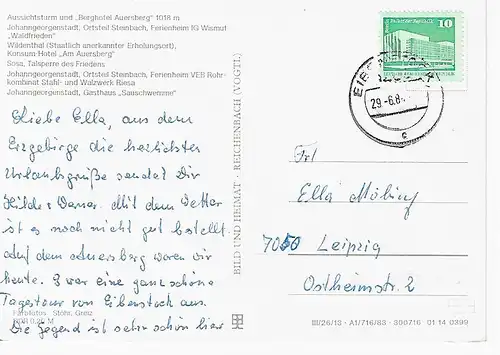 Aussichtsturm und „Berghotel Auersberg" 1018 m
Johanngeorgenstadt, Ortsteil Steinbach, Ferienheim IG Wismut
„Waldfrieden"
Wildenthal (Staatlich anerkannter Erholungsort),
Konsum-Hotel „Am Auersberg"
Sosa, Talsperre des Friedens
Johanngeorgenstadt, Ortsteil Steinbach, Ferienheim VEB Rohr-
kombinat Stahl- und Walzwerk Riesa
Johanngeorgenstadt, Gasthaus „Sauschwemme"
Liebe Ella, aus dem
Erzgebirge die herzlichsten
Urlaubsgrüße sendet Dir
Hilde + Werner. Mit dem Wetter
ist es noch nicht gut bestellt.
Auf dem Auersberg waren wir
heute. S' war eine ganz schöne
Tagestour von Eibenstock aus.
Die Gegend ist sehr schön hier
Farbfotos Stöhr, Greiz
BILD UND HEIMAT REICHENBACH (VOGTL)
10
29.-6.8
c
Frl
Ella Möbing
7050 Leipzig
Ostheimstr. 2
III/26/13 · A1/716/83 · 300716 01 14 0399